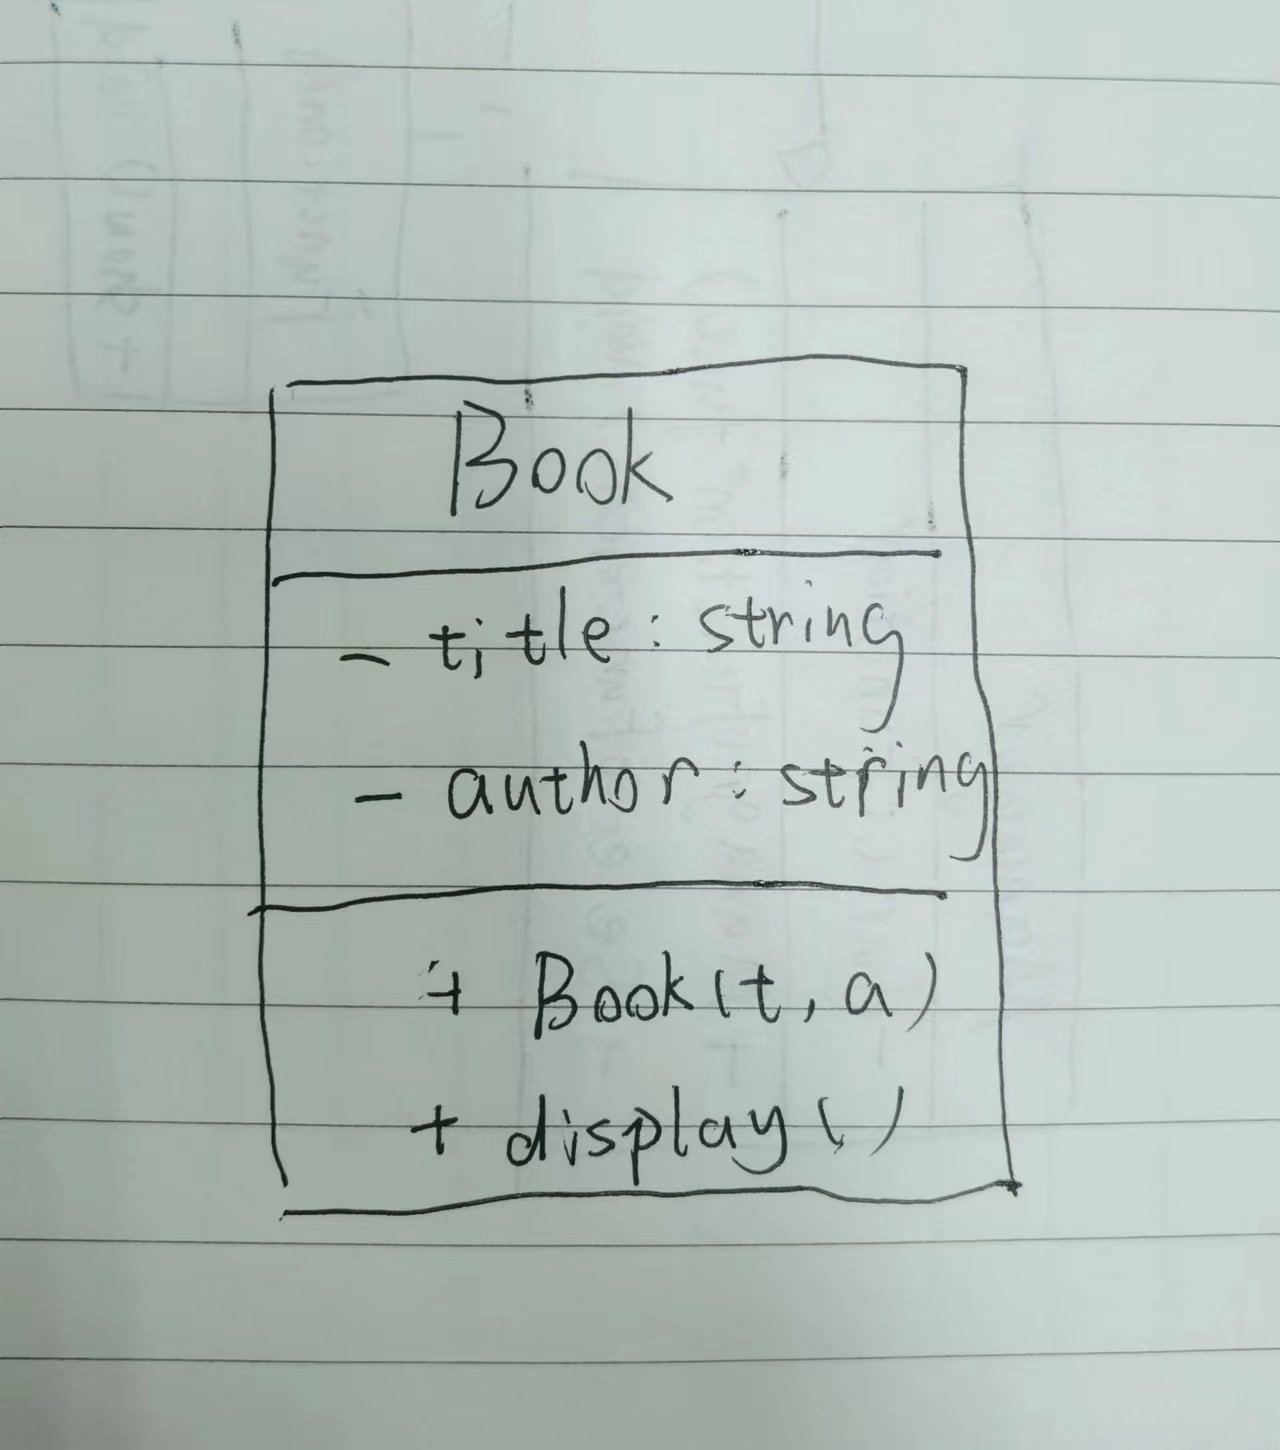 Book
- title : string
- author : string
+ Book(t, a)
+ display()